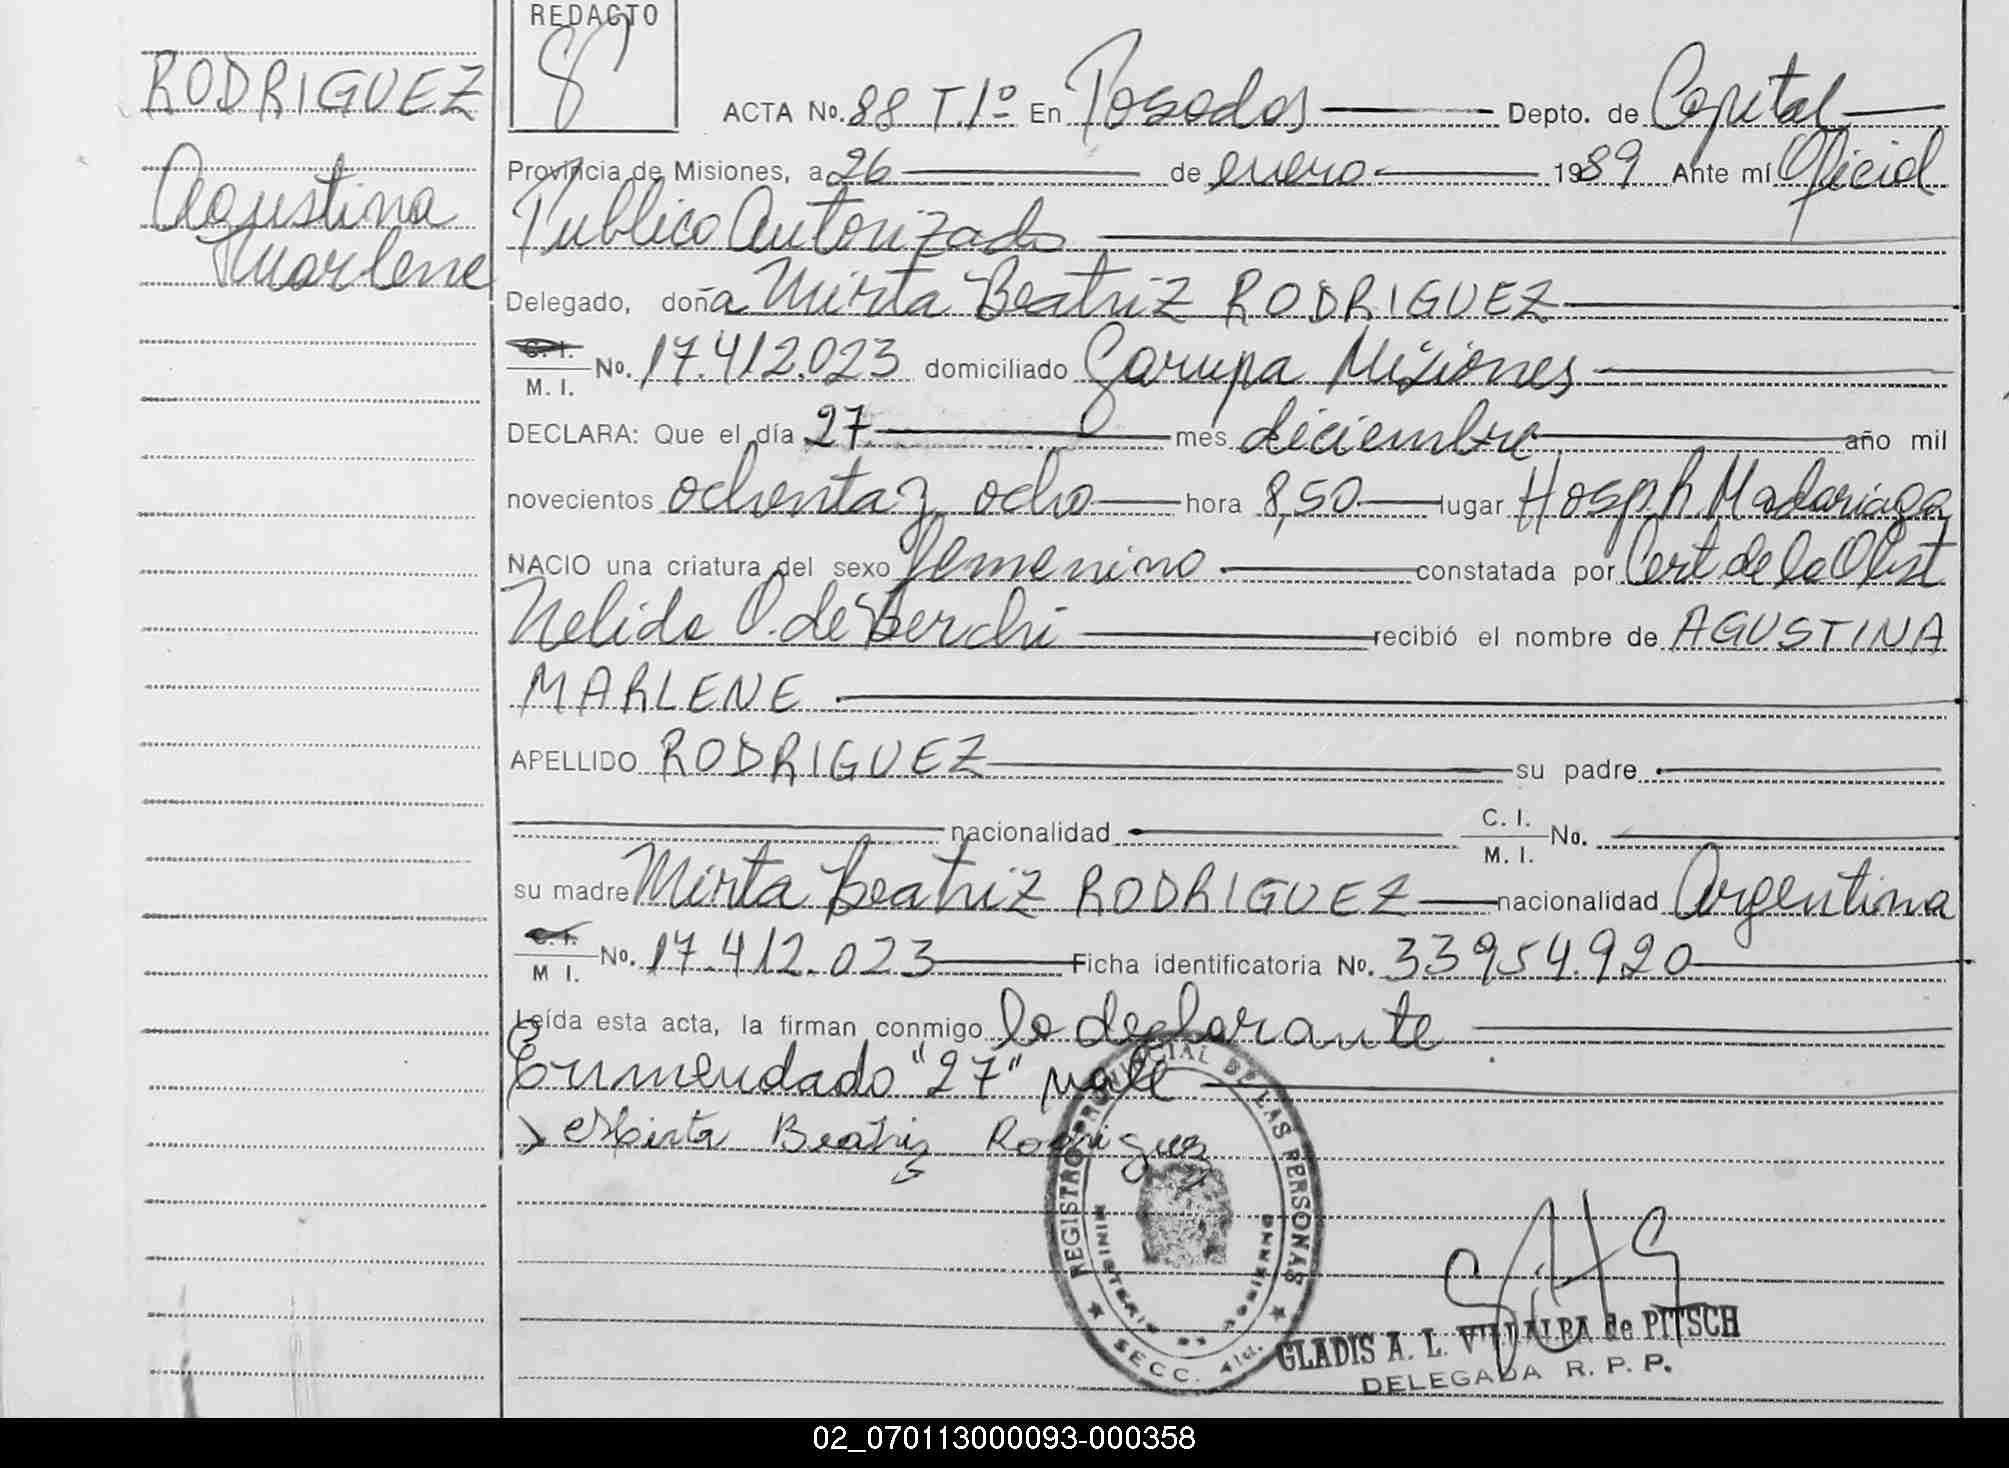 REDACTO
RODRIGUEZ
Agustina
Marlene
ACTA No. 88 T.1º En Posadas Depto. de Capital
Provincia de Misiones, a 26 de enero 1989 Ante mí Oficial
Publico Autorizado
Delegado, doña Mirta Beatriz RODRIGUEZ
C. I.
M. I. No. 17.412.023 domiciliado Garupa Misiones
DECLARA: Que el día 27 mes diciembre año mil
novecientos ochenta y ocho hora 8,50 lugar Hosp. R Madariaga
NACIO una criatura del sexo femenino constatada por Cert de la Obst
Nelida O. de recibió el nombre de AGUSTINA
MARLENE
APELLIDO RODRIGUEZ su padre
nacionalidad C. I.
M. I. No.
su madre Mirta Beatriz RODRIGUEZ nacionalidad Argentina
C. I.
M I. No. 17.412.023 Ficha identificatoria No. 33954.920
Leída esta acta, la firman conmigo la declarante
Enmendado "27" vale
Mirta Beatriz Rodriguez
REGISTRO PROVINCIAL DE LAS PERSONAS
MINISTERIO DE GOBIERNO
SECC. 4ta.
GLADIS A. L. VILLALBA de PITSCH
DELEGADA R. P. P.
02_070113000093-000358